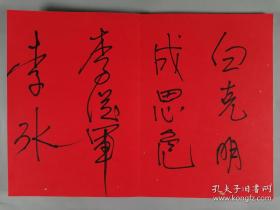 白克明
成思危
李從軍
李冰
孔夫子旧书网